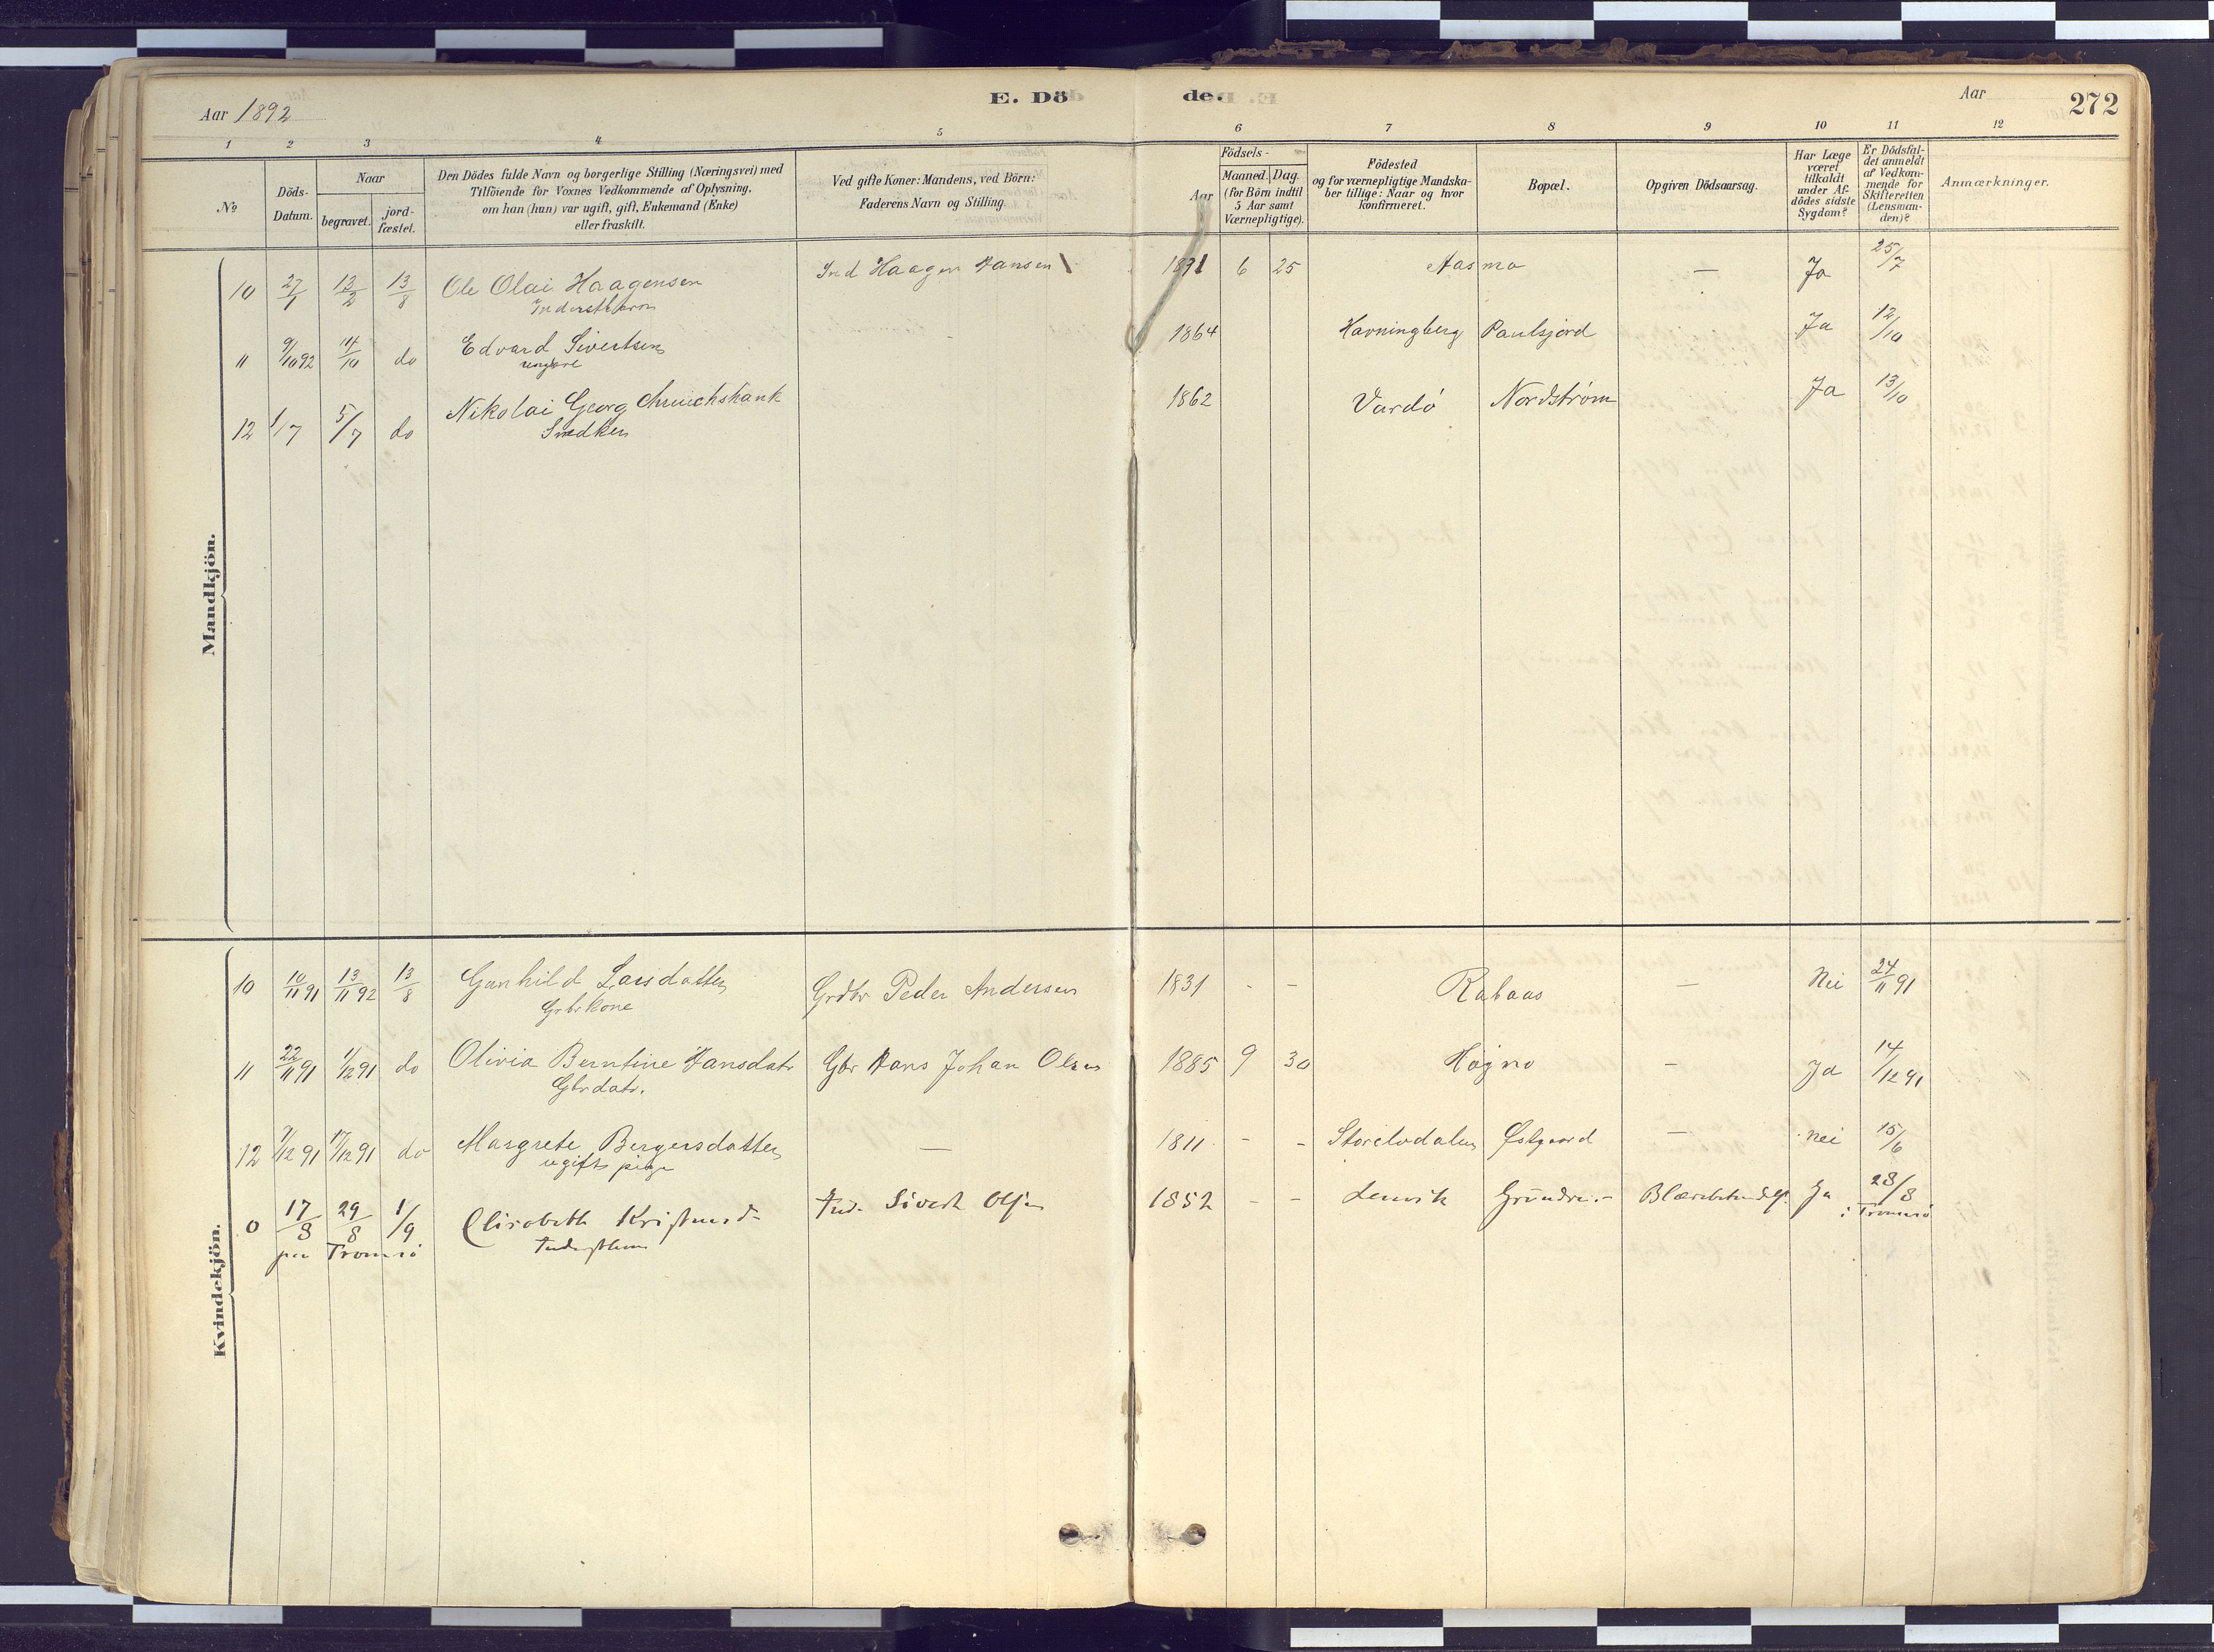 Aar 1892
E. Döde.
Aar
272
1 2 3 4 5 6 7 8 9 10 11 12
No
Döds-Datum.
Naar
begravet.
jord-fæstet.
Den Dödes fulde Navn og borgerlige Stilling (Næringsvei) med
Tilföiende for Voxnes Vedkommende af Oplysning,
om han (hun) var ugift, gift, Enkemand (Enke)
eller fraskilt.
Ved gifte Koner: Mandens, ved Börn:
Faderens Navn og Stilling.
Födsels-
Aar
Maaned. Dag.
(for Börn indtil
5 Aar samt
Værnepligtige).
Födested
og for værnepligtige Mandska-
ber tillige: Naar og hvor
konfirmeret.
Bopæl.
Opgiven Dödsaarsag.
Har Læge
været
tilkaldt
under Af-
dödes sidste
Sygdom?
Er Dödsfal-
det anmeldt
af Vedkom-
mende for
Skifteretten
(Lensman-
den)?
Anmærkninger.
Mandkjön.
10 27/1 13/2 13/8 Ole Olai Haagensen Ind Haagen Hansen 1891 6 25 Aasmo — Ja 25/7
11 9/10 92 14/10 do Edvard Sivertsen 1864 Havningberg Paulsjord Ja 12/10
ungkarl
12 1/7 5/7 do Nikolai Georg 1862 Vardö Nordstrøm Ja 13/10
Snedker
Kvindekjön.
10 10/11 91 13/11 92 13/8 Gunhild Larsdatter Grdbr Peder Andersen 1831 - - Rabaas — Nei 24/11 91
Gbrkone
11 22/11 91 1/12 91 do Olivia Berntine Hansdatr Gbr Hans Johan Olsen 1885 9 30 Høgmo - Ja 14/12 91
Gbrdatr.
12 9/12 91 17/12 91 do Margrete Bergersdatter — 1811 - - Storelvdalen Østgaard — nei 15/6
ugift pige
0 17/8 29/8 1/9 Elisabeth Ind. Sivert Olsen 1852 - - Lenvik Ja 28/8
paa Tromsö
i Tromsö